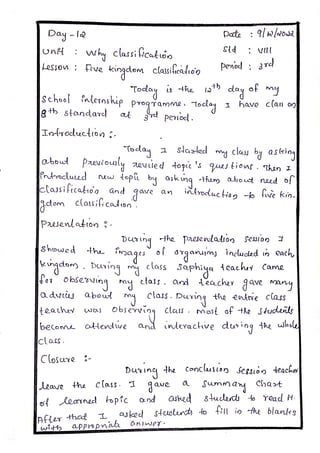 Day - 12 Date : 9/12/2022
Unit : Why classification Std : VIII
Lesson : Five kingdom classification period : 3rd
Today is the 12th day of my
School internship programme. Today I have class on
8th standard at 3rd period.
Introduction :-
Today I started my class by asking
about previously revised topic's questions. Then I
introduced new topic by asking them about need of
classification and gave an introduction to five kin-
gdom classification.
Presentation :-
During the presentation session I
showed the images of organisms included in each
kingdom. During my class Saphiya teacher came
for observing my class. and teacher gave many
advices about my class. During the entire class
teacher was observing class. most of the students
become attentive and interactive during the whole
class.
Closure :-
During the conclusion session teacher
leave the class. I gave a summary chart
of learned topic and asked students to read it.
After that I asked students to fill in the blanks
with appropriate answer.